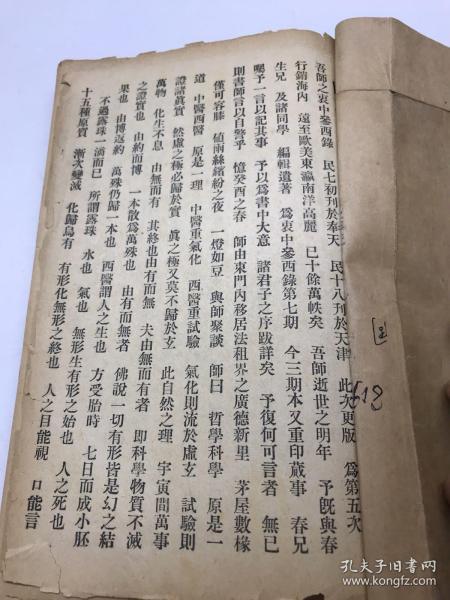 吾師之衷中參西錄 民七初刊於奉天 民十八刊於天津 此次更版 爲第五次
行銷海內 遠至歐美東瀛南洋高麗 已十餘萬帙矣 吾師逝世之明年 予旣與春
生兄 及諸同學 編輯遺著 爲衷中參西錄第七期 今三期本又重印蕆事 春兄
囑予一言以記其事 予以爲書中大意 諸君子之序跋詳矣 予復何可言者 無已
則書師言以自警乎 憶癸酉之春 師由東門內移居法租界之廣德新里 茅屋數椽
僅可容膝 值雨絲繽紛之夜 一燈如豆 與師聚談 師曰 哲學科學 原是一
道 中醫西醫 原是一理 中醫重氣化 西醫重試驗 氣化則流於虛玄 試驗則
證諸眞實 然虛之極必歸於實 眞之極又莫不歸於玄 此自然之理 宇宙間萬事
萬物 化生不息 由無而有 其終也由有而無 夫由無而有者 即科學物質不滅
之證實也 由約而博 一本散爲萬殊也 由有而無者 佛說一切有形皆是幻之結
果也 由博返約 萬殊仍歸一本也 西醫謂人之生也 方受胎時 七日而成小胚
不過露珠一滴而已 所謂露珠 水也 氣也 無形生有形之始也 人之死也
十五種原質 漸次變滅 化歸烏有 有形化無形之終也 人之目能視 口能言
孔夫子旧书网
book.kongfz.com